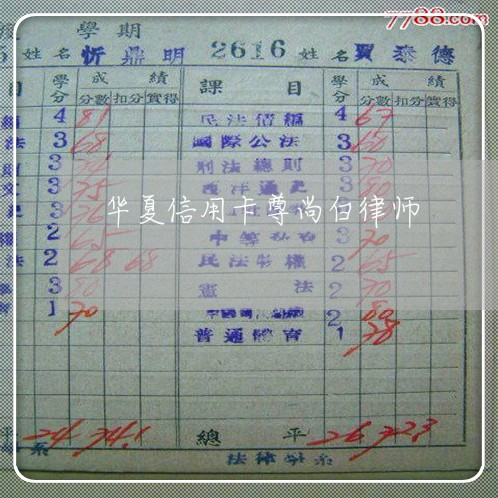 7788.com
學期
5 姓名 忻鼎明 2616 姓名 賈泰德
目 學分 成績 課目 學分 成績
分數 扣分 實得 分數 扣分 實得
4 81 民法債編 4 67
法 3 68 國際公法 3 60
3 刑法總則 3 70
3 75 西洋通史 3 80
華夏信用卡尊尚白律师
2 65 3 70
法 2 68 68 民法物權 2 65
3 80 憲法 2 70
1 70 2 80
普通體育 1 78
平 24 74.1 總平 26 72.3
系 法律學系